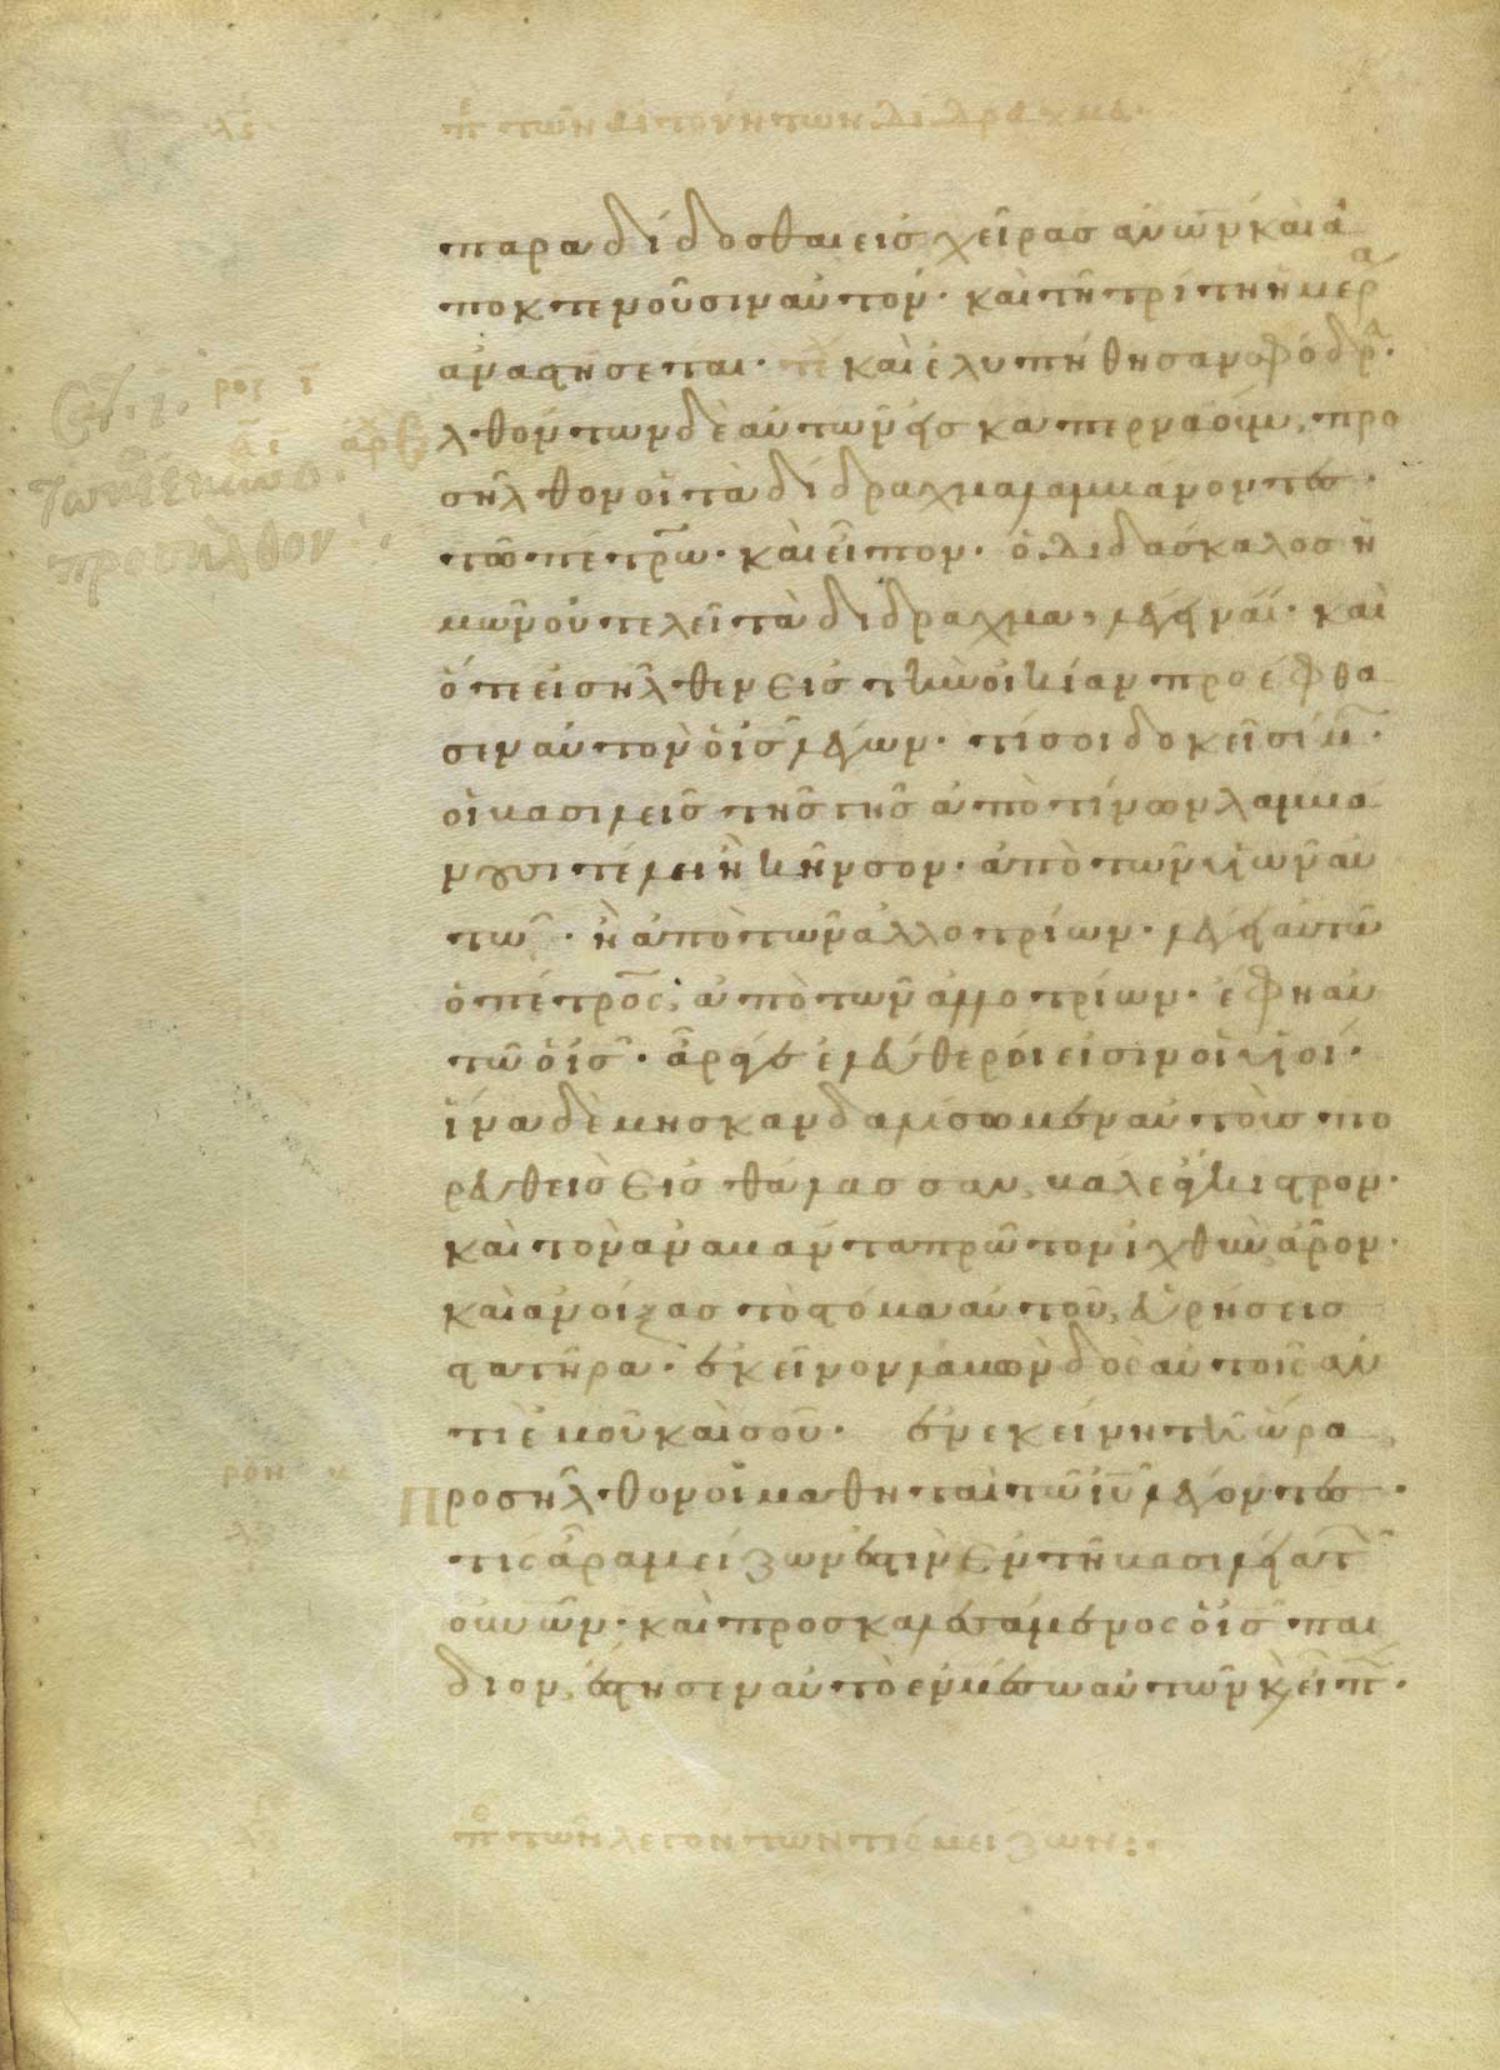 π τῶν αἰτούντων δίδραχμα·
παραδίδοσθαι εἰς χεῖρας ἀνων καὶ ἀ
ποκτενοῦσιν αὐτόν· καὶ τῆ τρίτη ἡμέρα
ἀναστήσεται· καὶ ἐλυπήθησαν σφόδρα·
λθόντων δὲ αὐτῶν εἰς καπερναούμ, προ
σῆλθον οἱ τὰ δίδραχμα λαμβάνοντες·
τῶ πέτρω· καὶ εἶπον· ὁ διδάσκαλος ἡ
μῶν οὐ τελεῖ τὰ δίδραχμα, λέγει ναί· καὶ
ὅτε εἰσῆλθεν εἰς τὴν οἰκίαν προέφθα
σεν αὐτὸν ὁ ις λέγων· τί σοι δοκεῖ σίμ·
οἱ βασιλεῖς τῆς γῆς ἀπὸ τίνων λαμβά
νουσι τέλη ἢ κῆνσον· ἀπὸ τῶν υἱῶν αὐ
τῶ· ἢ ἀπὸ τῶν ἀλλοτρίων· λέγει αὐτῶ
ὁ πέτρος· ἀπὸ τῶν ἀλλοτρίων· ἔφη αὐ
τῶ ὁ ις· ἄραγε ἐλεύθεροί εἰσιν οἱ υἱοί·
ἵνα δὲ μὴ σκανδαλίσωμεν αὐτοὺς πο
ρευθεὶς εἰς θάλασσαν, βάλε ἄγκιστρον·
καὶ τὸν ἀναβάντα πρῶτον ἰχθὺν ἆρον·
καὶ ἀνοίξας τὸ στόμα αὐτοῦ, εὑρήσεις
στατῆρα· ἐκεῖνον λαβὼν δὸς αὐτοῖς ἀν
τὶ ἐμοῦ καὶ σοῦ· ἐν ἐκείνη τῆ ὥρα
Προσῆλθον οἱ μαθηταὶ τῶ ιυ λέγοντες·
τίς ἄρα μείζων ἐστὶν ἐν τῆ βασιλεία τ
οὐνων· καὶ προσκαλεσάμενος ὁ ις παι
δίον, ἔστησεν αὐτὸ ἐν μέσω αὐτῶν κ εἶπ·
π τῶν λεγόντων τίς μείζων:·